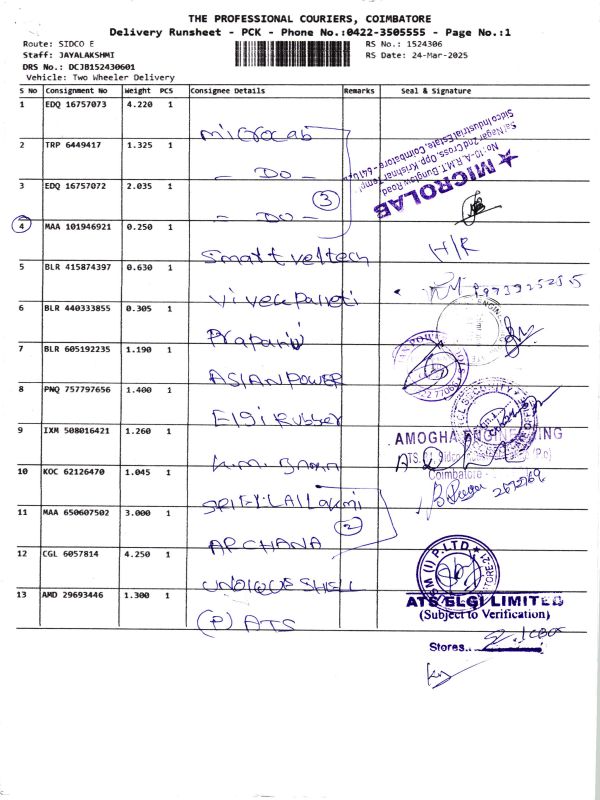 THE PROFESSIONAL COURIERS, COIMBATORE
Delivery Runsheet - PCK - Phone No.:0422-3505555 - Page No.:1
Route: SIDCO E
RS No.: 1524306
Staff: JAYALAKSHMI
RS Date: 24-Mar-2025
DRS No.: DCJB152430601
Vehicle: Two Wheeler Delivery
S No Consignment No Weight PCS Consignee Details Remarks Seal & Signature
1 EDQ 16757073 4.220 1 microlab
2 TRP 6449417 1.325 1 - DO -
3 EDQ 16757072 2.035 1 - DO - 3
4 MAA 101946921 0.250 1 Smart veltech H/R
5 BLR 415874397 0.630 1
6 BLR 440333855 0.305 1
7 BLR 605192235 1.190 1 ASIAN POWER
8 PNQ 757797656 1.400 1 Elgi Rubber
9 IXM 508016421 1.260 1
10 KOC 62126470 1.045 1
11 MAA 650607502 3.000 1 ARCHANA 2
12 CGL 6057814 4.250 1 SHELL
13 AMD 29693446 1.300 1 (P) ATS
★ MICROLAB
No:10-A,R.M.T. Bunglow Road
Sai Nagar 2nd Cross, Opp. Krishnar Temple
Sidco Industrial Estate, Coimbatore - 6410
AMOGHA ENGINEERING
Coimbatore -
ATS ELGI LIMITED
(Subject to Verification)
Stores..